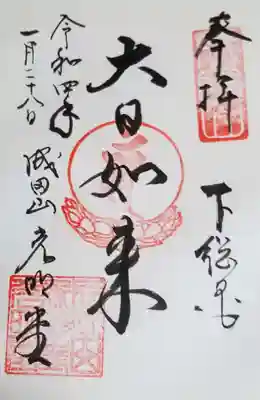 奉拝
下総国
大日如来
令和四年
一月二十八日
成田山
光明堂